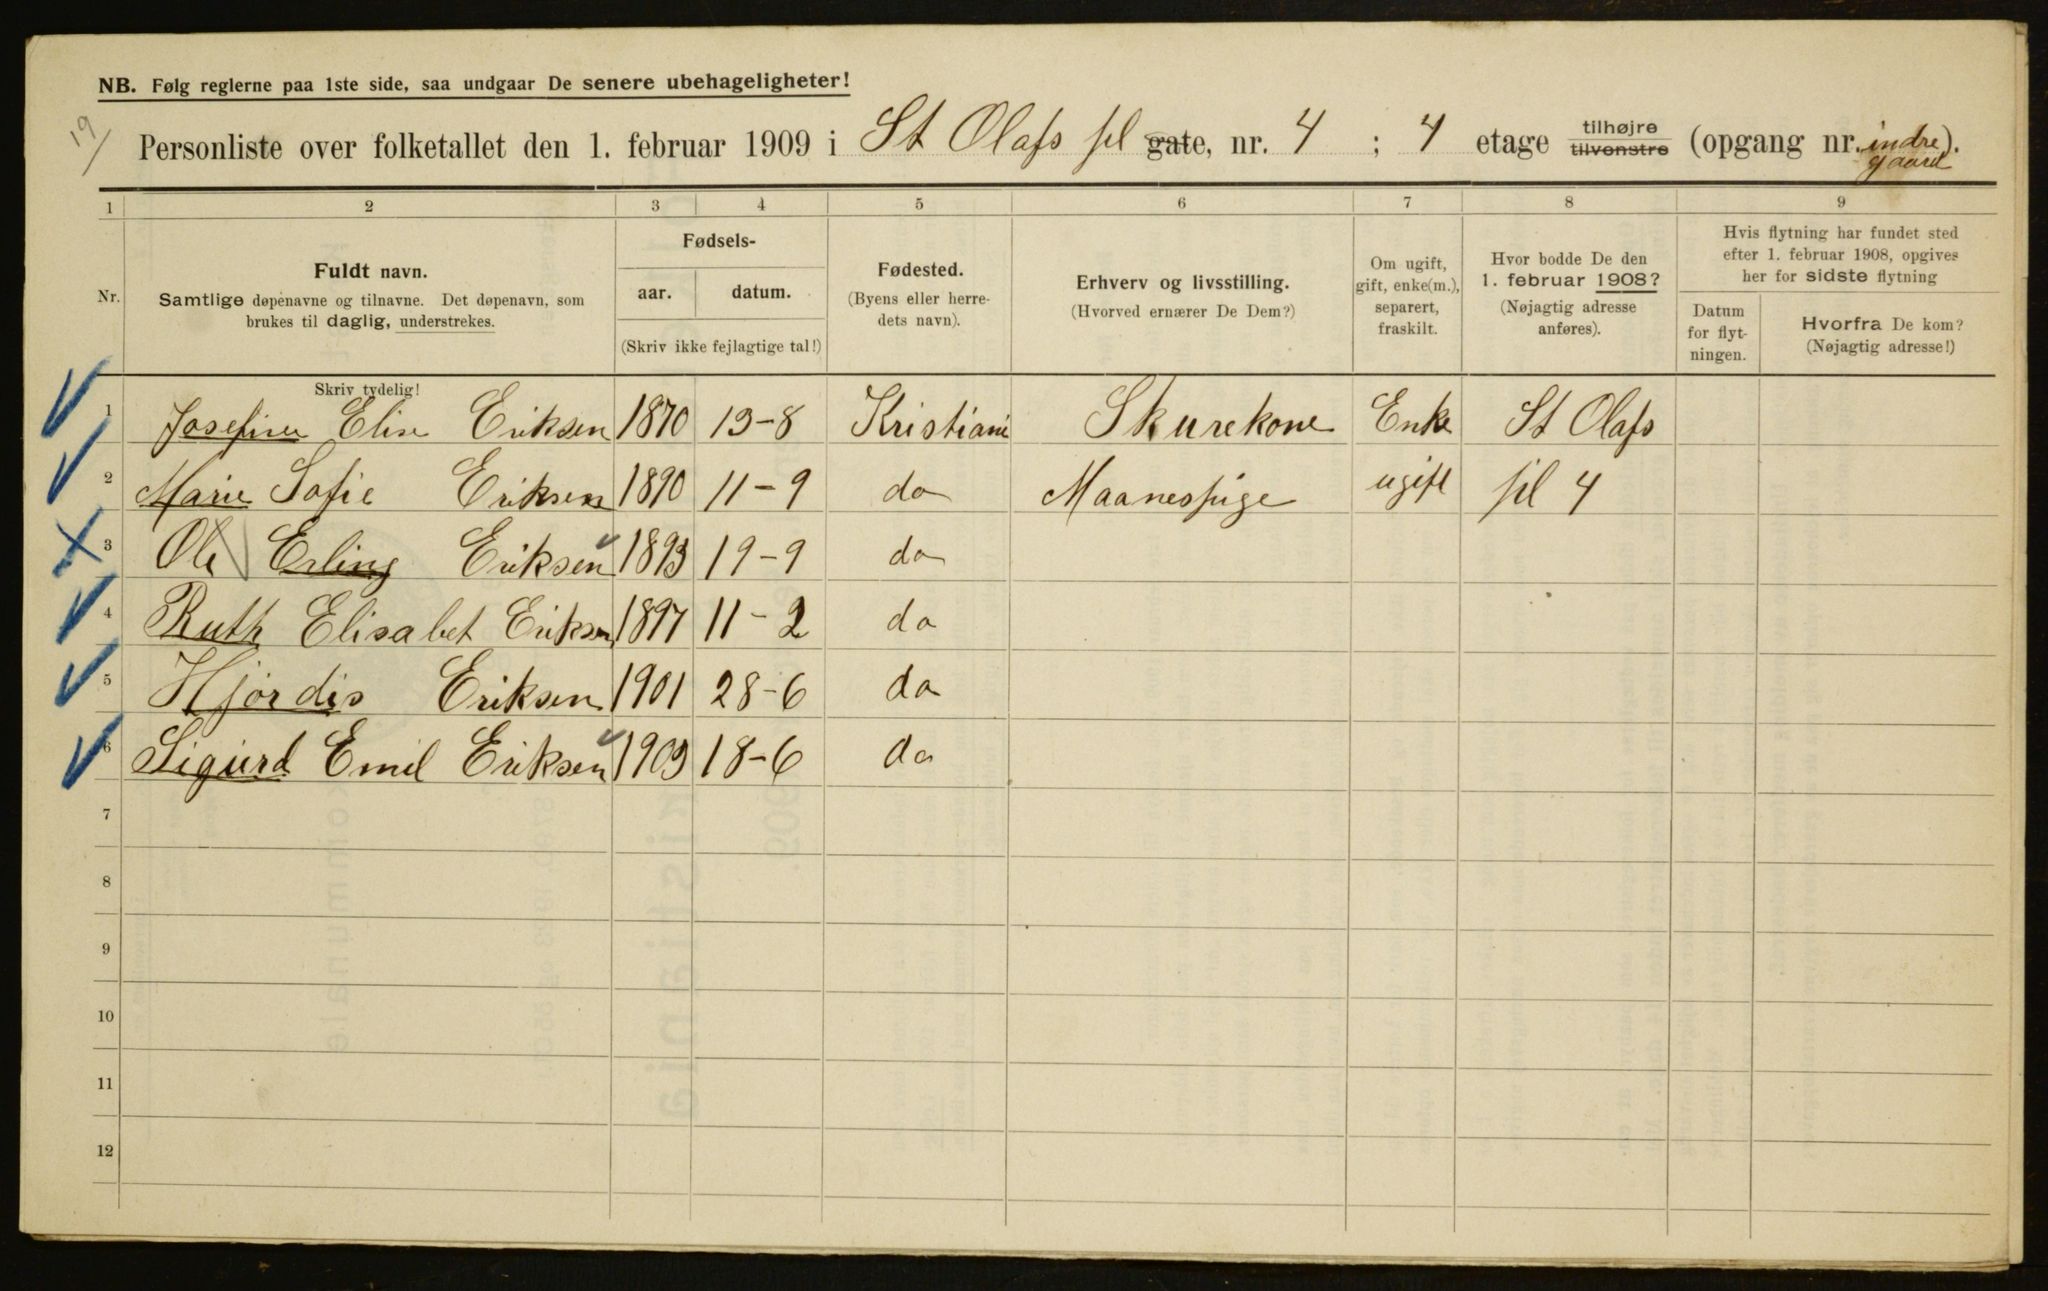 NB. Følg reglerne paa 1ste side, saa undgaar De senere ubehageligheter!
19/
Personliste over folketallet den 1. februar 1909 i St Olafs pl gate, nr. 4 ; 4 etage tilhøjre tilvenstre (opgang nr. indre gaard).
1 2 3 4 5 6 7 8 9
Nr.
Fuldt navn.
Samtlige døpenavne og tilnavne. Det døpenavn, som
brukes til daglig, understrekes.
Fødsels-
aar. datum.
(Skriv ikke fejlagtige tal!)
Fødested.
(Byens eller herre-
dets navn).
Erhverv og livsstilling.
(Hvorved ernærer De Dem?)
Om ugift,
gift, enke(m.),
separert,
fraskilt.
Hvor bodde De den
1. februar 1908?
(Nøjagtig adresse
anføres).
Hvis flytning har fundet sted
efter 1. februar 1908, opgives
her for sidste flytning
Datum
for flyt-
ningen.
Hvorfra De kom?
(Nøjagtig adresse!)
Skriv tydelig!
1 Josefine Elise Eriksen 1870 13-8 Kristiani Skurekone Enke St Olafs
2 Marie Sofie Eriksen 1890 11-9 do Maanespige ugift pl 4
3 Ole Erling Eriksen 1893 19-9 do
4 Ruth Elisabet Eriksen 1897 11-2 do
5 Hjørdis Eriksen 1901 28-6 do
6 Sigurd Emil Eriksen 1903 18-6 do
7
8
9
10
11
12